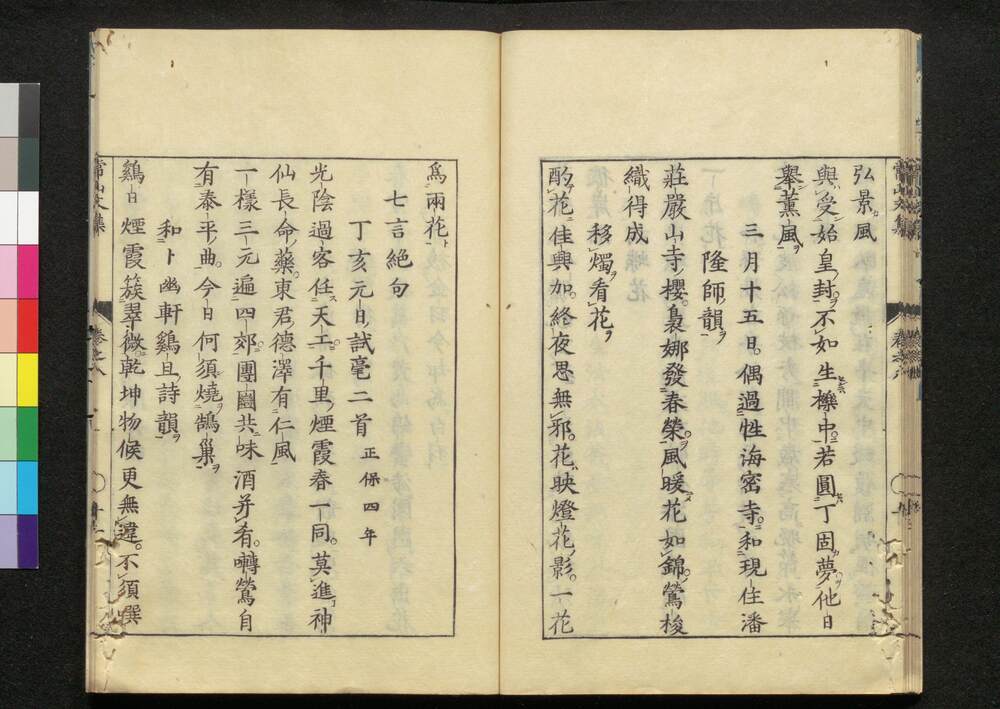 弘景風
與受始皇封不如生櫟中若圓丁固夢他日
擧薰風
三月十五日偶過性海密寺和現住潘
隆師韻
莊嚴山寺櫻裊娜發春榮風暖花如錦鶯梭
織得成
移燭看花
酌花佳興加終夜思無邪花映燈花影一花
爲兩花
七言絕句
丁亥元日試毫二首 正保四年
光陰過客任天工千里煙霞春一同莫進神
仙長命藥東君德澤有仁風
一樣三元遍四郊團圞共味酒并肴囀鶯自
有泰平曲今日何須燒鵲巢
和卜幽軒鷄旦詩韻
鷄日煙霞簇翠微乾坤物候更無違不須撰
常山文集
卷之八